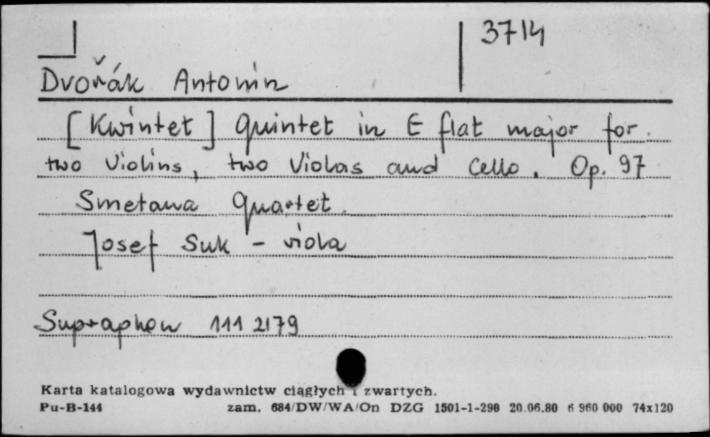 3714
Dvořák Antonín
[Kwintet] Quintet in E flat major for
two Violins, two Violas and Cello. Op. 97
Smetana Quartet
Josef Suk - viola
Supraphon 111 2179
Karta katalogowa wydawnictw ciągłych i zwartych.
Pu-B-144 zam. 684/DW/WA/On DZG 1501-1-290 20.06.80 6 960 000 74x120